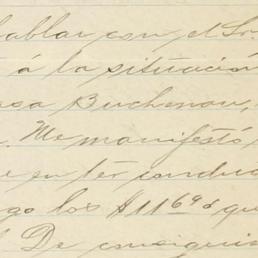 hablar con el Sr.
á la situación
casa Buchenau,
. Me manifestó
e en ter
go los $11690 que
. De consiguie